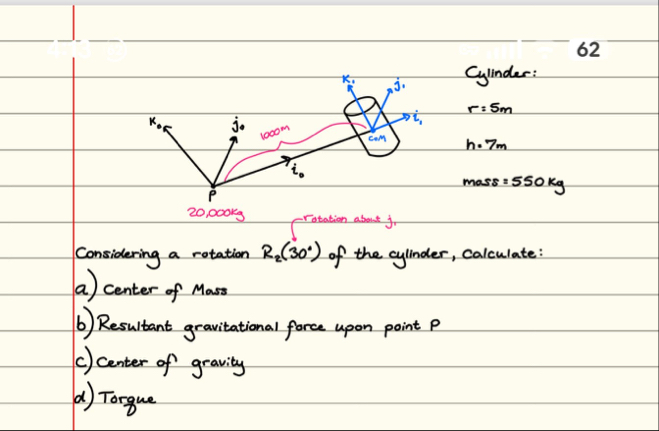 62
Cylinder:
r=5m
h=7m
mass=550 Kg
K₁
j₁
i₁
COM
1000m
K₀
j₀
i₀
P
20,000Kg
rotation about j₁
Considering a rotation R₂(30°) of the cylinder, calculate:
a) Center of Mass
b) Resultant gravitational force upon point P
c) Center of gravity
d) Torque